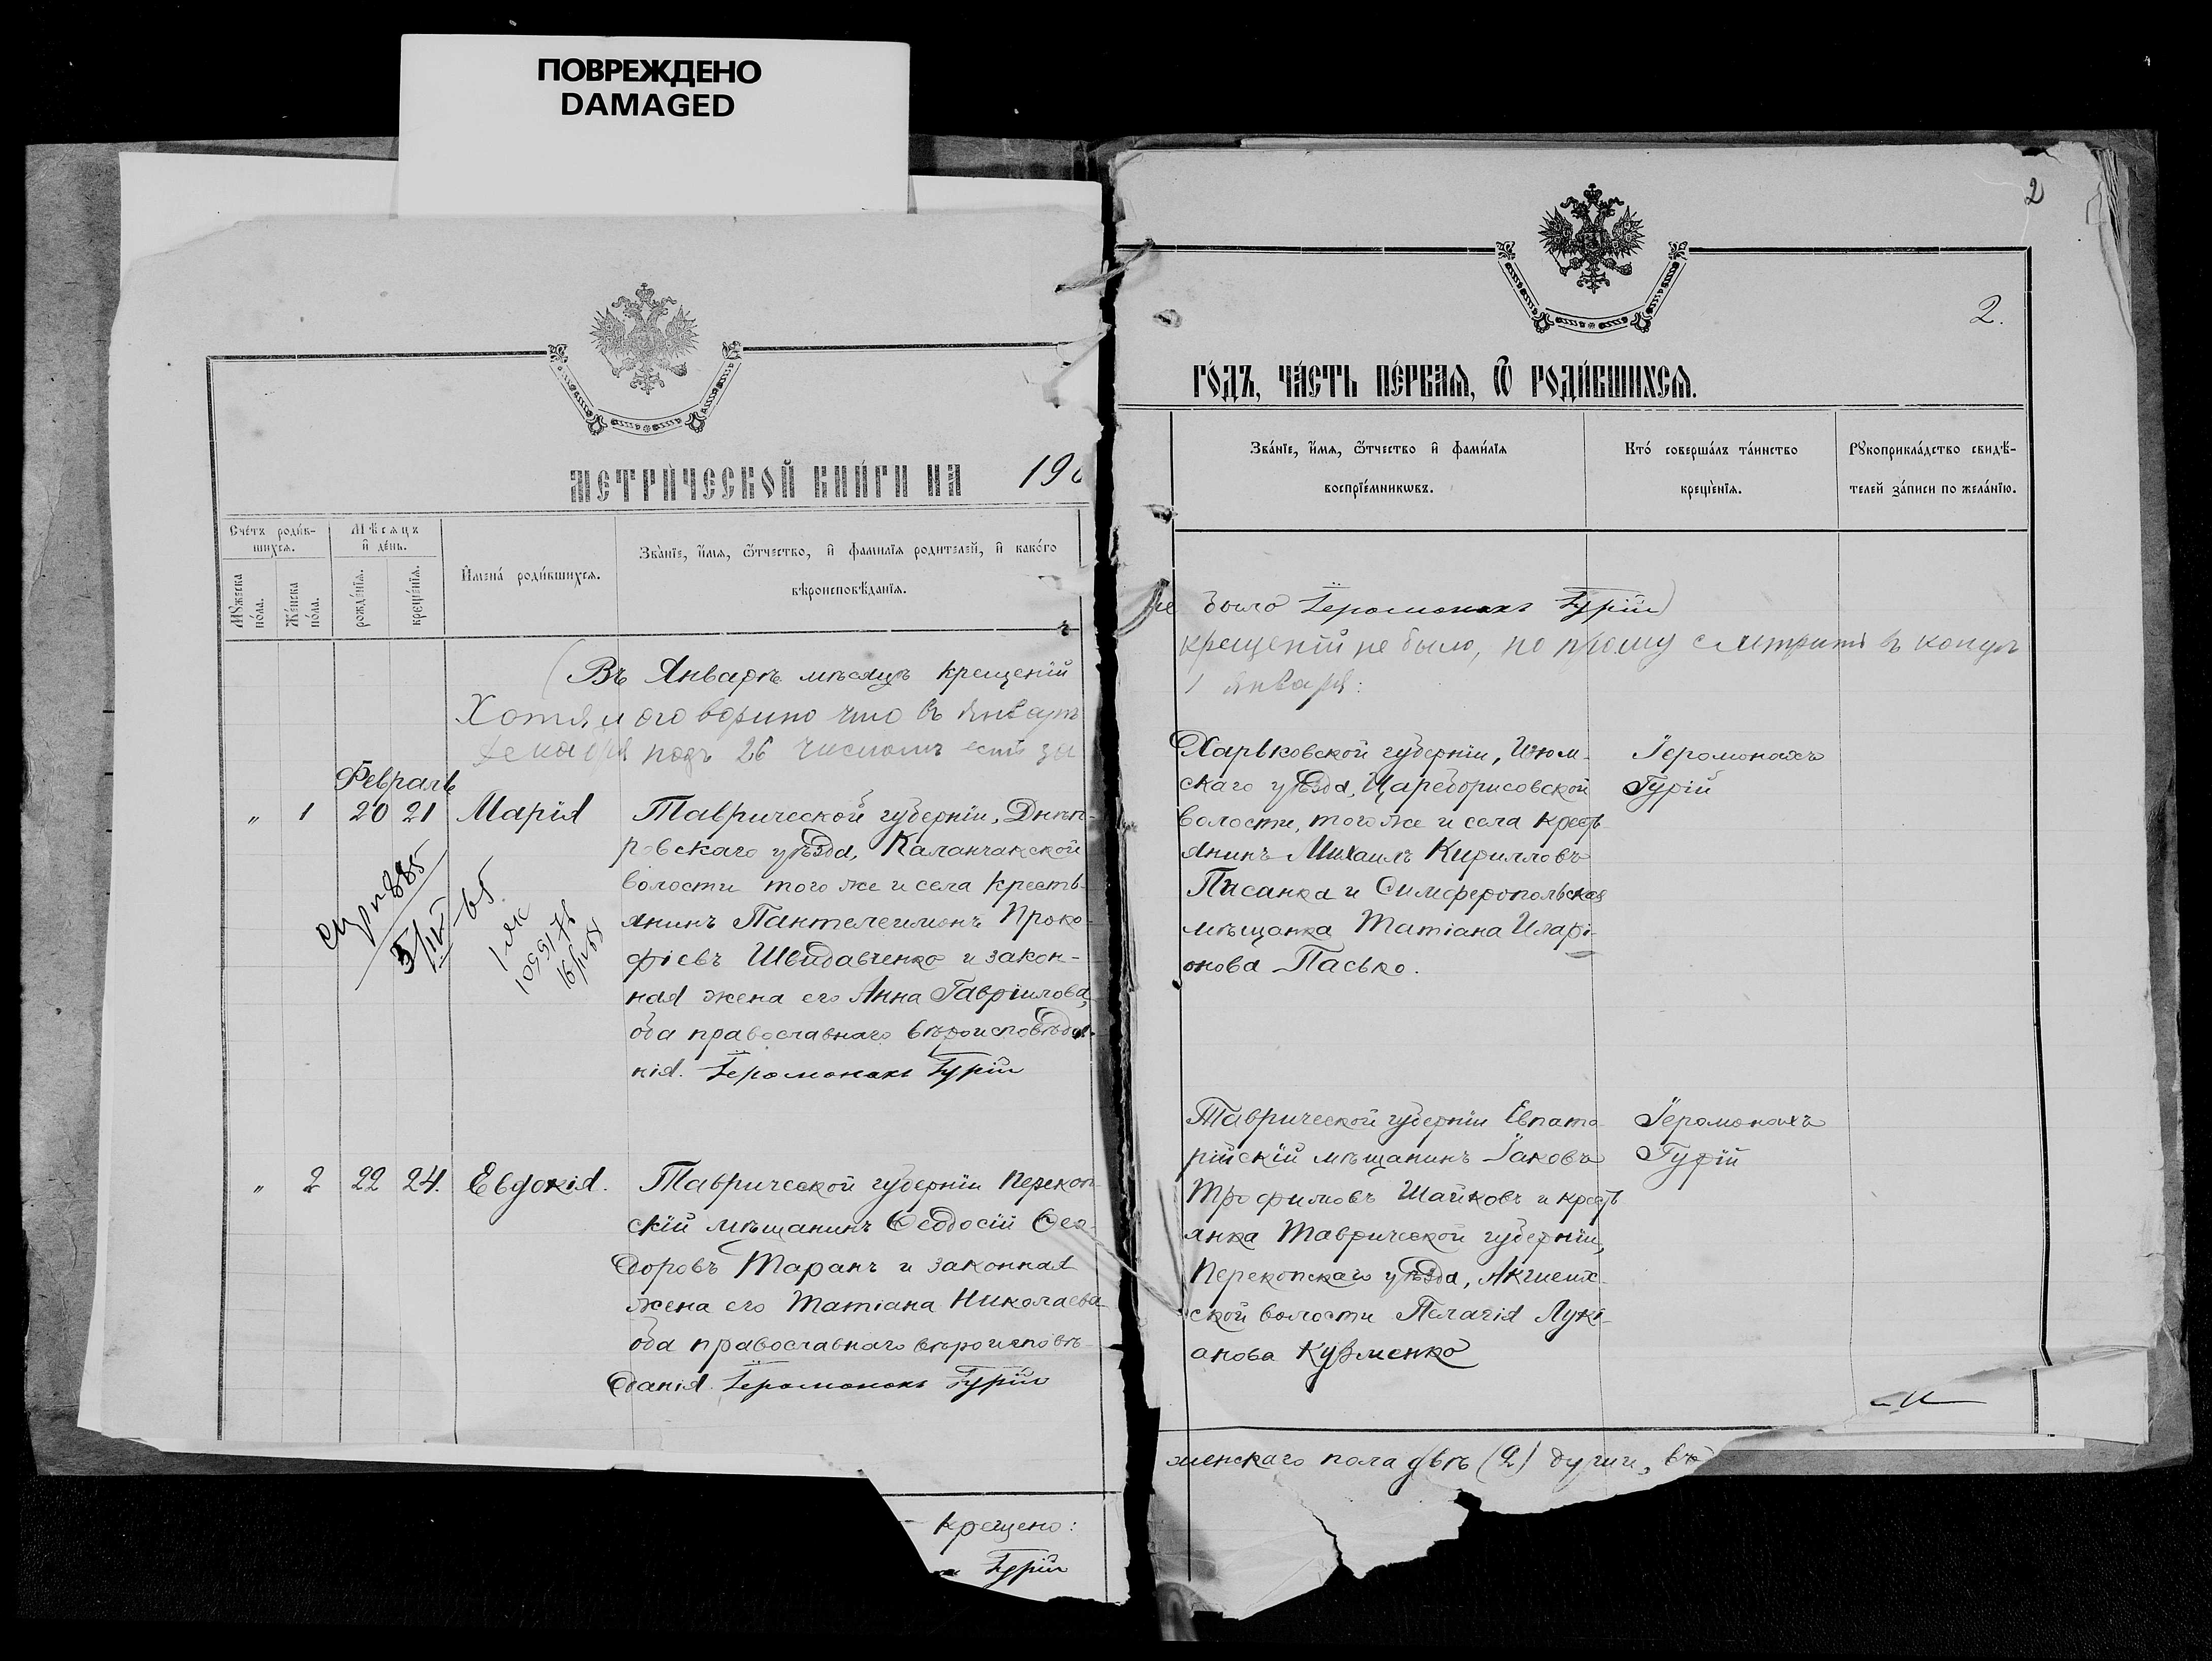 ПОВРЕЖДЕНО
DAMAGED
МЕТРИ́ЧЕСКОЙ КНИ́ГИ НА 190
Сче́тъ роди́в-
шихсѧ.
Мѣ́сѧцъ
и҆ де́нь.
И҆мена́ роди́вшихсѧ.
Зва́нїе, и҆́мѧ, ѻ҆́тчество, и҆ фами́лїѧ роди́телей, и҆ како́го
вѣроисповѣ́данїѧ.
Мꙋ́жеска
по́ла.
Же́нска
по́ла.
рожде́нїѧ.
креще́нїѧ.
(Въ Январѣ мѣсяцѣ крещеній
Хотя и оговорино что въ Январѣ
Декабря подъ 26 числомъ есть за
Февраль
" 1 20 21 Марія
Таврической губерніи, Днѣп-
ровскаго уѣзда, Каланчакской
волости того же и села кресть-
янинъ Пантелеимонъ Проко-
фіевъ Швидавченко и закон-
ная жена его Анна Гавріилова,
оба православнаго вѣроисповѣда-
нія. Іеромонахъ Гурій
885
5/IV-65
105517
" 2 22 24. Евдокія.
Таврической губерніи Перекоп-
скій мѣщанинъ Ѳеодосій Ѳео-
доровъ Таранъ и законная
жена его Татіана Николаева
оба православнаго вѣроисповѣ-
данія. Іеромонахъ Гурій
крещено:
Гурій
2
2.
ГО́ДЪ, ЧА́СТЬ ПЕ́РВАѦ, Ѽ РОДИ́ВШИХСѦ.
Зва́нїе, и҆́мѧ, ѻ҆́тчество и҆ фами́лїѧ
воспрїе́мникѡвъ.
Кто́ соверша́лъ та́инство
креще́нїѧ.
Рꙋкоприкла́дство свидѣ́-
телей за́писи по жела́нїю.
не было Іеромонахъ Гурій)
крещеній не было, но прошу смотрить въ концѣ
1 января:
Харьковской губерніи, Изюм-
скаго уѣзда, Цареборисовской
волости, того же и села кресть-
янинъ Михаилъ Кирилловъ
Писанка и Симферопольская
мѣщанка Татіана Иларі-
онова Пасько.
Іеромонахъ
Гурій
Таврической губерніи Евпато-
рійскій мѣщанинъ Іаковъ
Трофимовъ Шайковъ и кресть-
янка Таврической губерніи,
Перекопскаго уѣзда, Акшеих-
ской волости Пелагія Лукі-
анова Кузменко
Іеромонахъ
Гурій
женскаго пола двѣ (2) души, въ